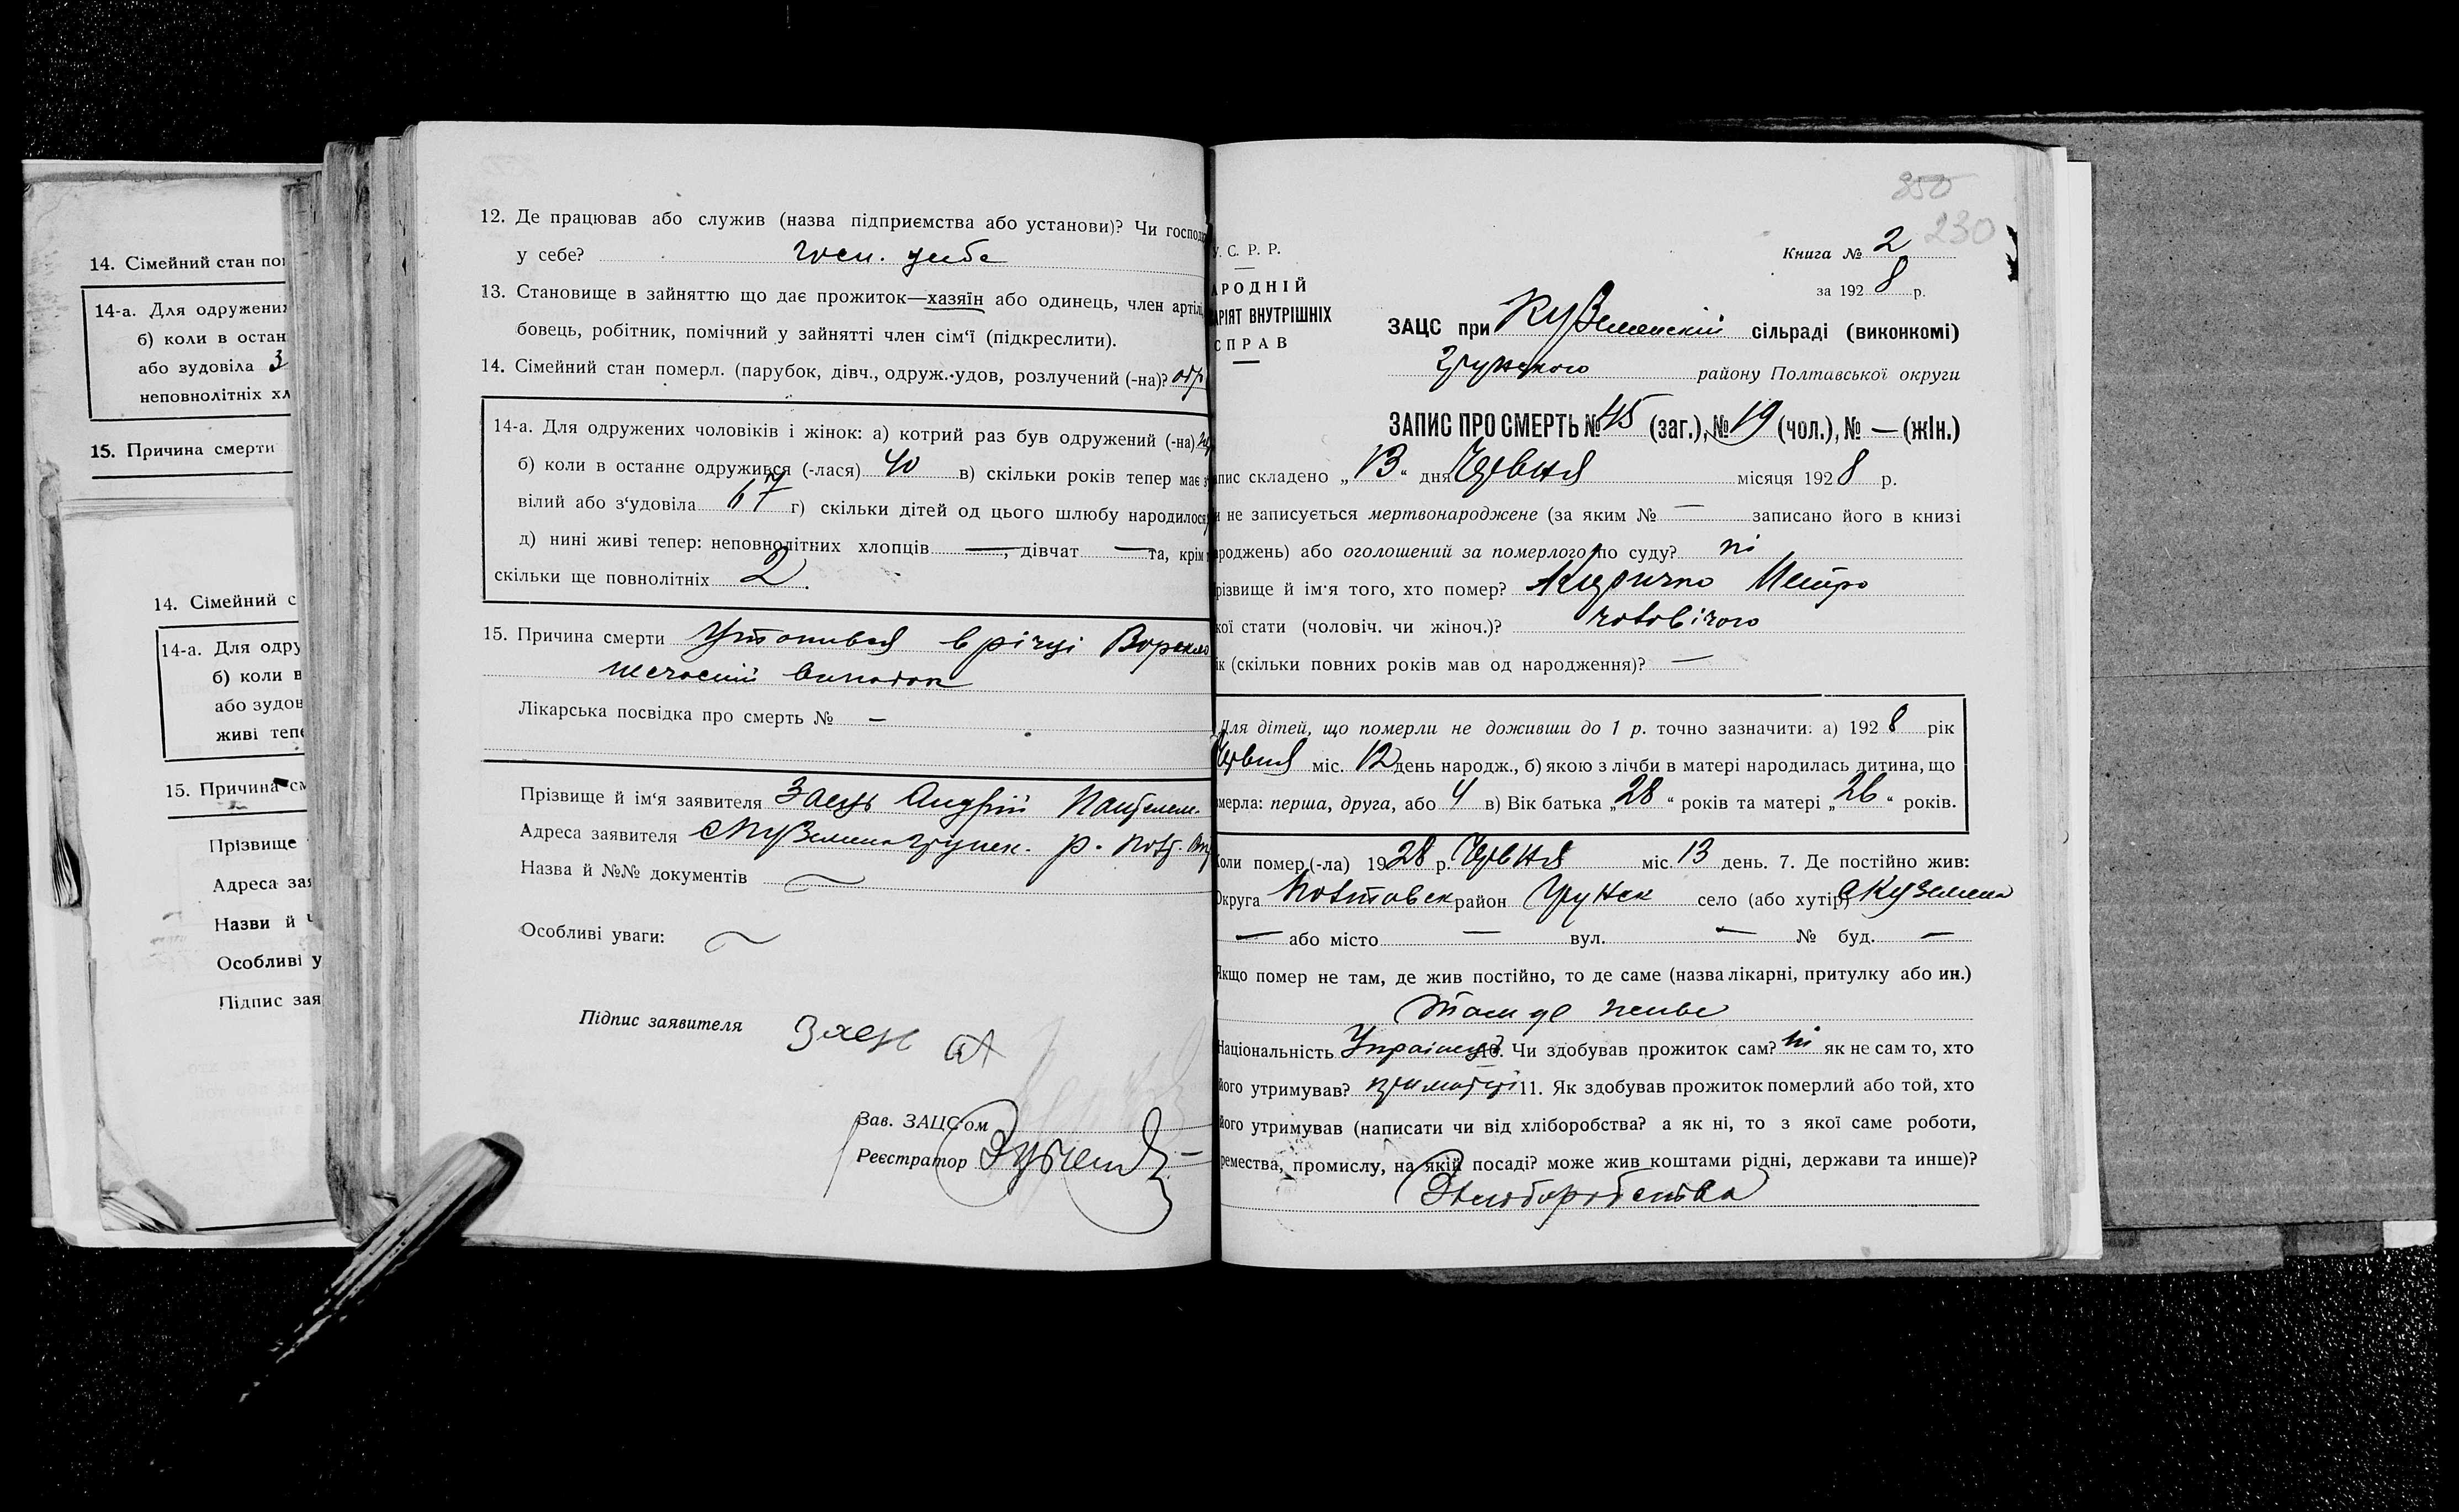 14. Сімейний стан по
14-а. Для одружених
б) коли в остан
або зудовіла 3
неповнолітніх хл
15. Причина смерти
14. Сімейний с
14-а. Для одру
б) коли в
або зудов
живі тепе
15. Причина см
Прізвище
Адреса зая
Назви й
Особливі у
Підпис зая
12. Де працював або служив (назва підприємства або установи)? Чи господ
у себе? госп. у себе
13. Становище в зайняттю що дає прожиток—хазяїн або одинець, член артіл
бовець, робітник, помічний у зайнятті член сім‘ї (підкреслити).
14. Сімейний стан померл. (парубок, дівч., одруж. удов, розлучений (-на)? одр
14-а. Для одружених чоловіків і жінок: а) котрий раз був одружений (-на)
б) коли в останнє одружився (-лася) 40 в) скільки років тепер має
вілий або з‘удовіла 67 г) скільки дітей од цього шлюбу народилося
д) нині живі тепер: неповнолітних хлопців —, дівчат — та, крім
скільки ще повнолітніх 2.
15. Причина смерти Утопився в річці Ворскло
нечасний випадок
Лікарська посвідка про смерть № —
Прізвище й ім‘я заявителя Заєць Андрій Пантелем.
Адреса заявителя с Куземена Грунск. р. Полт.
Назва й №№ документів
Особливі уваги:
Підпис заявителя Заєць А
Зав. ЗАЦС‘ом
Реєстратор
850
230
У. С. Р. Р.
АРОДНІЙ
АРІЯТ ВНУТРІШНІХ
СПРАВ
Книга № 2
за 1928 р.
ЗАЦС при Куземенскій сільраді (виконкомі)
Грунского району Полтавської округи
ЗАПИС ПРО СМЕРТЬ № 45 (заг.), № 19 (чол.), № — (жін.)
апис складено „13“ дня Червня місяця 1928 р.
и не записується мертвонароджене (за яким № — записано його в книзі
ароджень) або оголошений за померлого по суду? ні
різвище й ім‘я того, хто помер? Андрични Петро
кої стати (чоловіч. чи жіноч.)? чоловічого
ік (скільки повних років мав од народження)? —
Для дітей, що померли не доживши до 1 р. точно зазначити: а) 1928 рік
Червня міс. 12 день народж., б) якою з лічби в матері народилась дитина, що
мерла: перша, друга, або 4 в) Вік батька „28“ років та матері „26“ років.
Коли помер (-ла) 1928 р. Червня міс. 13 день. 7. Де постійно жив:
Округа Полтавск район Грунск село (або хутір) с Куземена
— або місто — вул. — № буд. —
Якщо помер не там, де жив постійно, то де саме (назва лікарні, притулку або ин.)
Там де живе
Національність Українець 10. Чи здобував прожиток сам? ні як не сам то, хто
його утримував? при матері 11. Як здобував прожиток померлий або той, хто
його утримував (написати чи від хліборобства? а як ні, то з якої саме роботи,
ремества, промислу, на якій посаді? може жив коштами рідні, держави та инше)?
Хлiборобства